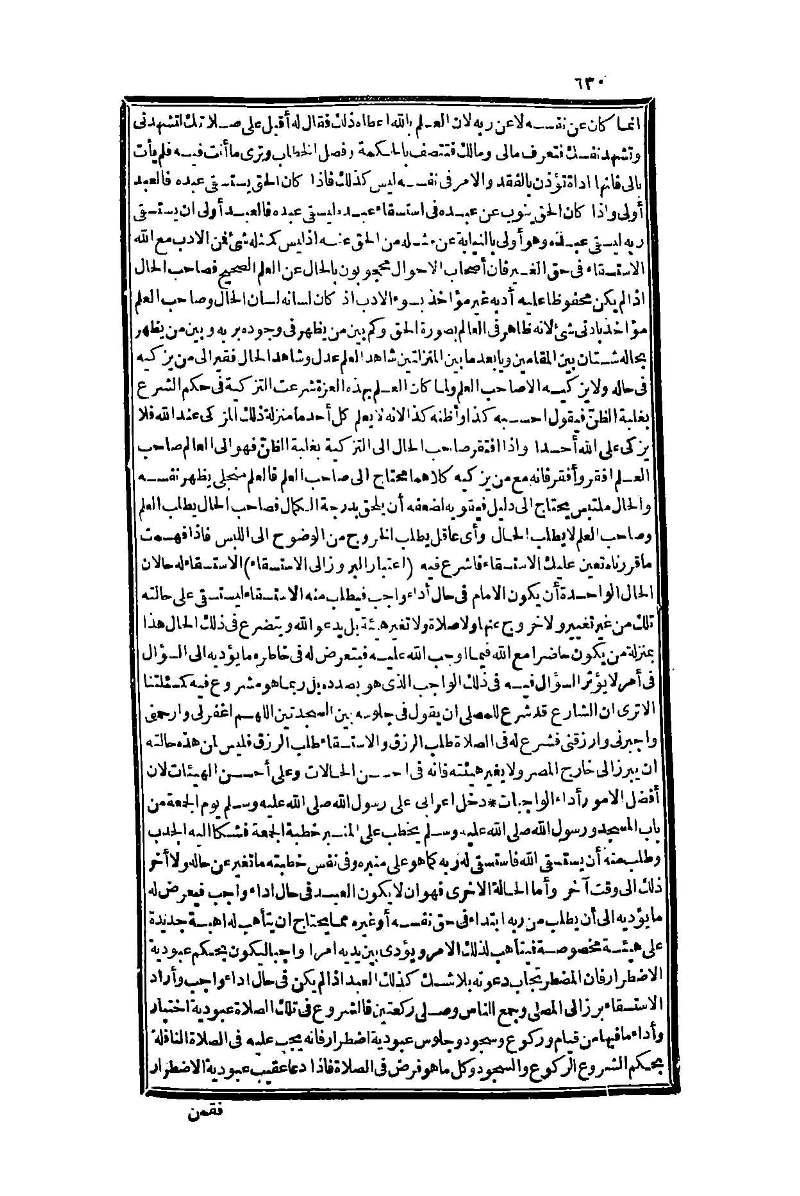 ٦٣٠
انما كان عن نفسه لا عن ربه لان العلم بالله اعطاه ذلك فقال له أقبل على صلاتك لتشهدنى
وتشهد نفسك فتعرف مالى ومالك فتتصف بالحكمة وفصل الخطاب وترى ما أنت فيه فلم يأت
بالى فانها اداة تؤذن بالفقد والامر فى نفسه ليس كذلك فاذا كان الحق يستسقى عبده فالعبد
أولى واذا كان الحق ينوب عن عبده فى استسقاء عبده ليستسقى عبده فالعبد أولى ان يستسقى
ربه ليسقى عبده وهو أولى بالنيابة عن مثله من الحق عنه اذ ليس كمثله شئ فمن الادب مع الله
الاستسقاء فى حق الغير فان أصحاب الاحوال محجوبون بالحال عن العلم الصحيح فصاحب الحال
اذا لم يكن محفوظا عليه أدبه غير مؤاخذ بسوء الادب اذ كان لسانه لسان الحال وصاحب العلم
مؤاخذ بادنى شئ لانه ظاهر فى العالم بصورة الحق وكم بين من يظهر فى وجوده بربه وبين من يظهر
بحاله شتان بين المقامين ويا بعد ما بين المنزلتين شاهد العلم عدل وشاهد الحال فقير الى من يزكيه
فى حاله ولا يزكيه الا صاحب العلم ولما كان العلم بهذه العزة شرعت التزكية فى حكم الشرع
بغلبة الظن فيقول احسبه كذا وأظنه كذا لانه لا يعلم كل أحد ما منزلة ذلك المزكى عند الله فلا
يزكى على الله أحدا واذا افتقر صاحب الحال الى التزكية بغلبة الظن فهو الى العالم صاحب
العلم افقر وأفقر فانه مع من يزكيه كلاهما محتاج الى صاحب العلم فالعلم متجلى يظهر نفسه
والحال ملتبس يحتاج الى دليل فيقويه لضعفه أن يلحق بدرجة الكمال فصاحب الحال يطلب العلم
وصاحب العلم لا يطلب الحال وأى عاقل يطلب الخروج من الوضوح الى اللبس فاذا فهمت
ما قررناه تعين عليك الاستسقاء فاشرع فيه (اعتبار البروز الى الاستسقاء) الاستسقاء له حالان
الحال الواحدة أن يكون الامام فى حال أداء واجب فيطلب منه الاستسقاء ليستسقى على حالته
تلك من غير تغيير ولا خروج عنها ولا صلاة ولا تغير هيئة بل يدعو الله ويتضرع فى ذلك الحال هذا
بمنزلة من يكون حاضرا مع الله فيما اوجب الله عليه فيتعرض له فى خاطره ما يؤديه الى السؤال
فى أمر لا يؤثر السؤال فيه فى ذلك الواجب الذى هو بصدده بل ربما هو مشروع فيه كمسئلتنا
الا ترى ان الشارع قد شرع للمصلى ان يقول فى جلوسه بين السجدتين اللهم اغفر لى وارحمنى
واجبرنى وارزقنى فشرع له فى الصلاة طلب الرزق والاستسقاء طلب الرزق فليس من هذه حالته
ان يبرز الى خارج المصر ولا يغير هيئته فانه فى احسن الحالات وعلى أحسن الهيئات لان
أفضل الامور أداء الواجبات * دخل اعرابى على رسول الله صلى الله عليه وسلم يوم الجمعة من
باب المسجد ورسول الله صلى الله عليه وسلم يخطب على المنبر خطبة الجمعة فشكا اليه الجدب
وطلب منه أن يستسقى الله فاستسقى له ربه كما هو على منبره وفى نفس خطبته ما تغير عن حاله ولا أخر
ذلك الى وقت آخر وأما الحالة الاخرى فهو ان لا يكون العبد فى حال اداء واجب فيعرض له
ما يؤديه الى أن يطلب من ربه ابتداء فى حق نفسه أو غيره مما يحتاج ان يتأهب له اهبة جديدة
على هيئة مخصوصة فيتأهب لذلك الامر ويؤدى بين يديه امرا واجبا ليكون بحكم عبودية
الاضطرار فان المضطر تجاب دعوته بلا شك كذلك العبد اذا لم يكن فى حال اداء واجب وأراد
الاستسقاء برز الى المصلى وجمع الناس وصلى ركعتين فالشروع فى تلك الصلاة عبودية اختيار
وأداء ما فيها من قيام وركوع وسجود وجلوس عبودية اضطرار فانه يجب عليه فى الصلاة النافلة
بحكم الشروع الركوع والسجود وكل ما هو فرض فى الصلاة فاذا دعا عقيب عبودية الاضطرار
فقمن